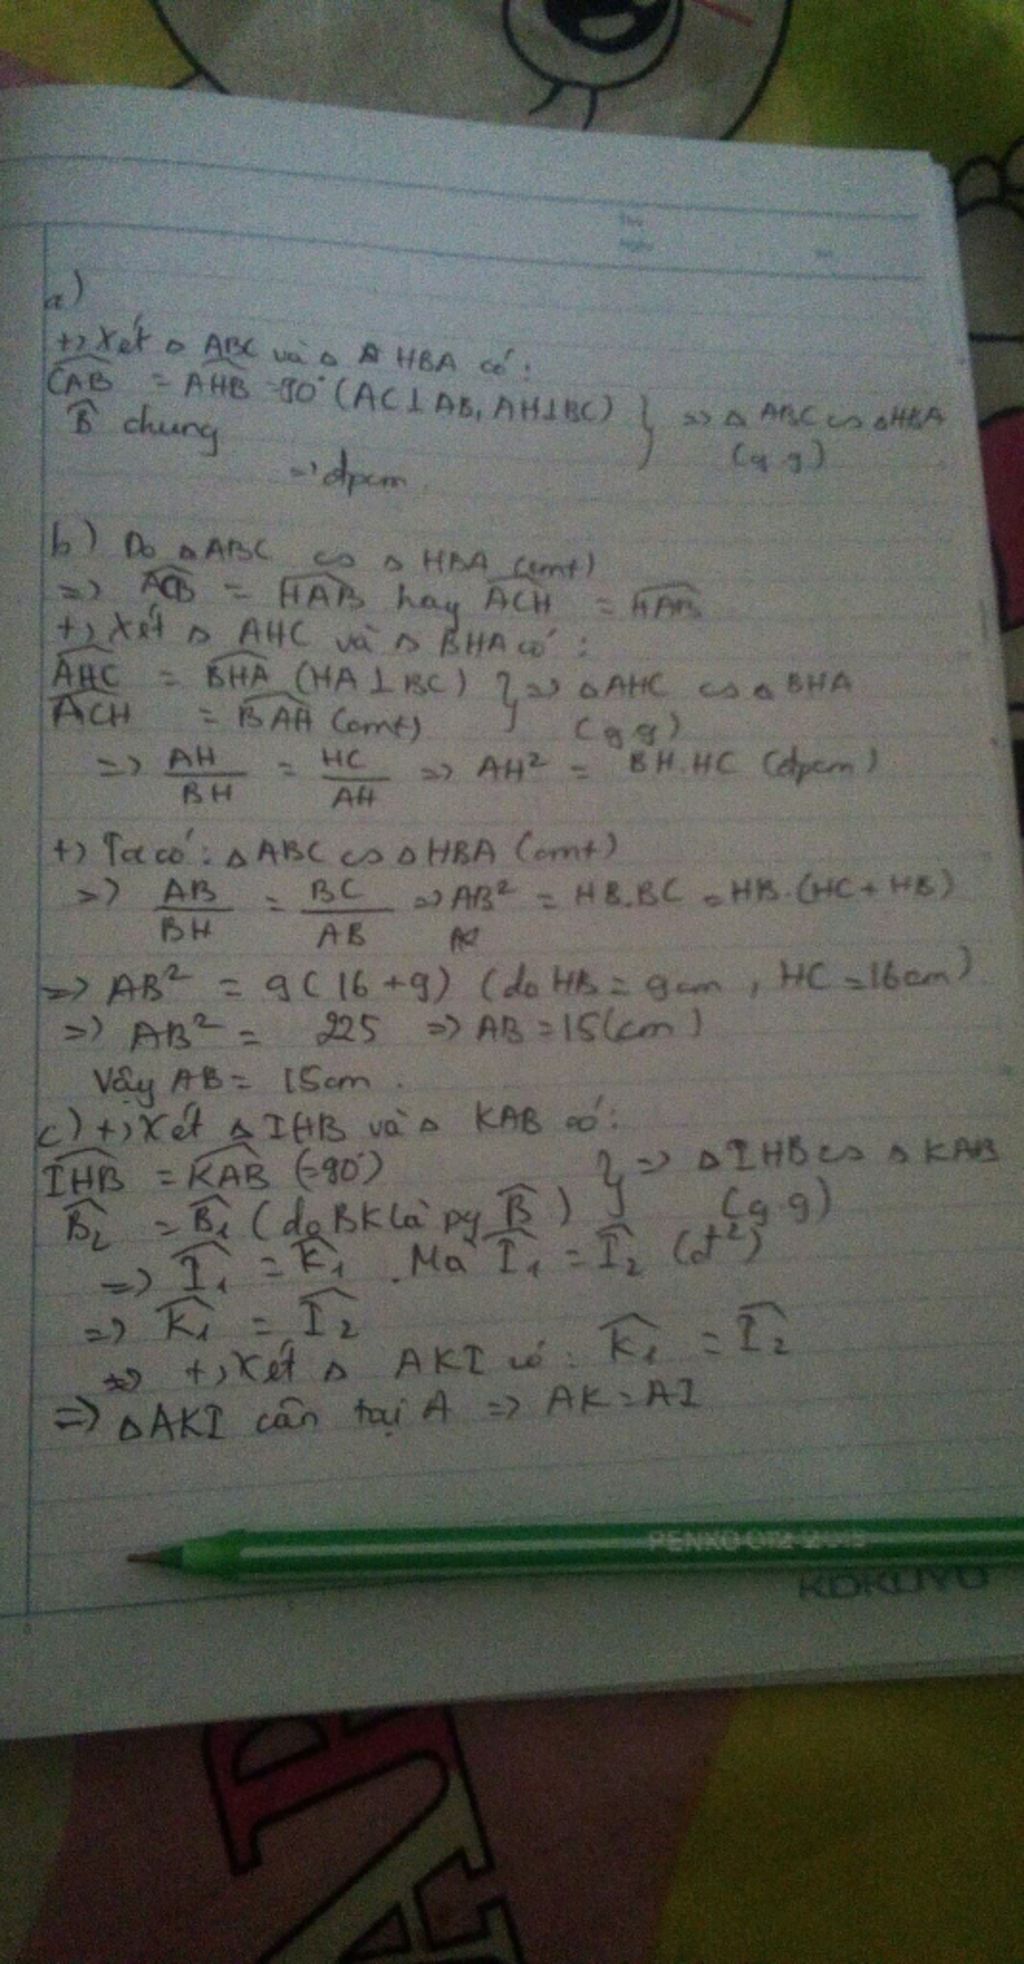 a)
+, Xét △ ABC và △ A HBA có:
CAB = AHB = 90° (AC⊥AB, AH⊥BC) } => △ ABC ∽ △HBA
B chung (g.g)
=> đpcm
b) Do △ABC ∽ △ HBA (cmt)
=> ACB = HAB hay ACH = HAB
+, Xét △ AHC và △ BHA có:
AHC = BHA (HA⊥BC) } => △AHC ∽ △BHA
ACH = BAH (cmt) (g.g)
=> AH/BH = HC/AH => AH² = BH.HC (đpcm)
+, Ta có: △ABC ∽ △HBA (cmt)
=> AB/BH = BC/AB => AB² = HB.BC = HB.(HC + HB)
=> AB² = 9(16+9) (do HB = 9cm, HC = 16cm)
=> AB² = 225 => AB = 15(cm)
Vậy AB = 15cm.
c) +, Xét △IHB và △ KAB có:
IHB = KAB (=90°) } => △IHB ∽ △KAB
B₂ = B₁ (do BK là pg B) (g.g)
=> I₁ = K₁. Mà I₁ = I₂ (đ²)
=> K₁ = I₂
=> +, Xét △ AKI có: K₁ = I₂
=> △AKI cân tại A => AK = AI
KOKUYO